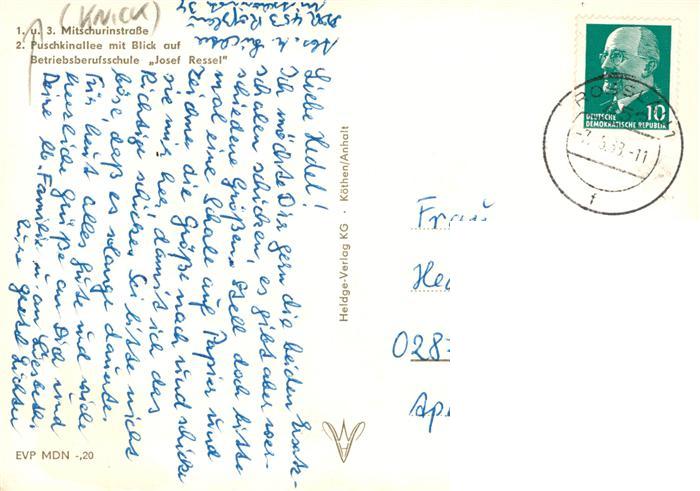 (KNICK)
1. u. 3. Mitschurinstraße
2. Puschkinallee mit Blick auf
Betriebsberufsschule „Josef Ressel"
Abs. H.
453 Roßlau
34
Liebe Hedel!
Ich möchte Dir gern die beiden Ersatz-
schalen schicken, es gibt aber ver-
schiedene Größen. Stell doch bitte
mal eine Schale auf Papier und
zeichne die Größe nach und schicke
sie mir her, damit ich das
Richtige schicke. Sei bitte nicht
böse, daß es solange dauerte.
Für heut alles Gute und viele
herzliche Grüße an Dich und
Deine lb. Familie u. an Liesbeth.
Eure
Heldge-Verlag KG · Köthen/Anhalt
EVP MDN -,20
DEUTSCHE
DEMOKRATISCHE REPUBLIK
10
ROSSLAU
-11
f
Frau
He
028